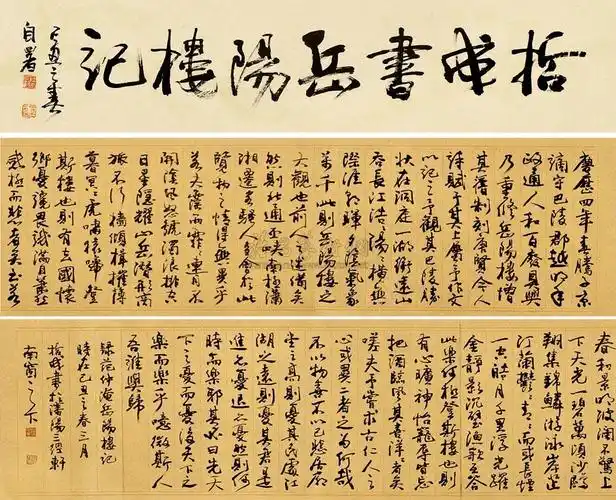 哲成書岳陽樓記
己丑之春
自署
慶曆四年春滕子京
謫守巴陵郡越明年
政通人和百廢具興
乃重修岳陽樓增
其舊制刻唐賢今人
詩賦于其上屬予作文
以記之予觀其巴陵勝
狀在洞庭一湖銜遠山
吞長江浩浩湯湯橫無
際涯朝暉夕陰氣象
萬千此則岳陽樓之
大觀也前人之述備矣
然則北通巫峽南極瀟
湘遷客騷人多會於此
覽物之情得無異乎
若夫霪雨霏霏連月不
開陰風怒號濁浪排空
日星隱耀山岳潛形商
旅不行檣傾楫摧薄
暮冥冥虎嘯猿啼登
斯樓也則有去國懷
鄉憂讒畏譏滿目蕭然
感極而悲者矣至若
春和景明波瀾不驚上
下天光一碧萬頃沙鷗
翔集錦鱗游泳岸芷
汀蘭鬱鬱青青而或長煙
一空皓月千里浮光躍
金靜影沉璧漁歌互答
此樂何極登斯樓也則
有心曠神怡寵辱皆忘
把酒臨風其喜洋洋者矣
嗟夫予嘗求古仁人之
心或異二者之為何哉
不以物喜不以己悲居廟
堂之高則憂其民處江
湖之遠則憂其君是
進亦憂退亦憂然則何
時而樂耶其必曰先天
下之憂而憂後天下之
樂而樂乎噫微斯人
吾誰與歸
錄范仲淹岳陽樓記
時在己丑之春三月
哲成書於瀋陽三經軒
南窗之下